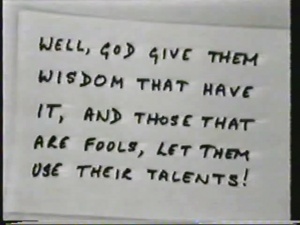 WELL, GOD GIVE THEM
WISDOM THAT HAVE
IT, AND THOSE THAT
ARE FOOLS, LET THEM
USE THEIR TALENTS!